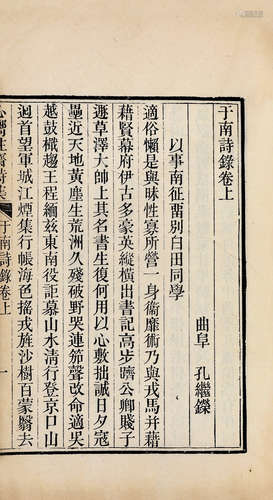 于南詩錄卷上
曲阜 孔繼鑅
以事南征留別白田同學
適俗懶是與昧性寡所營一身衛靡術乃與戎馬并藉
藉賢幕府伊古多豪英縱橫出書記高步躋公卿賤子
遜草澤大師上其名書生復何用以心敷拙誠日夕寇
壘近天地黃塵生荒洲久殘破野哭連笳聲改命適吳
越鼓檝趨王程緬茲東南役詎慕山水淸行登京口山
迴首望軍城江煙集行帳海色搖戎旌沙樹百蒙翳去
心嚮往齋詩集
于南詩錄卷上
一